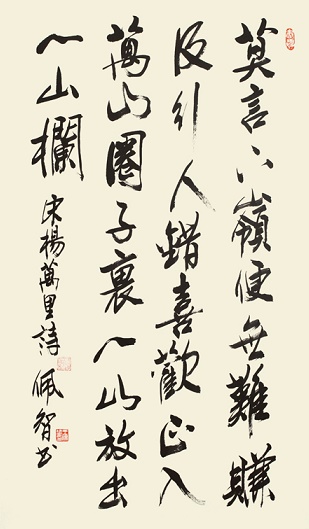 莫言下嶺便無難賺
得行人錯喜歡正入
萬山圈子裏一山放出
一山欄 宋楊萬里詩 佩智书